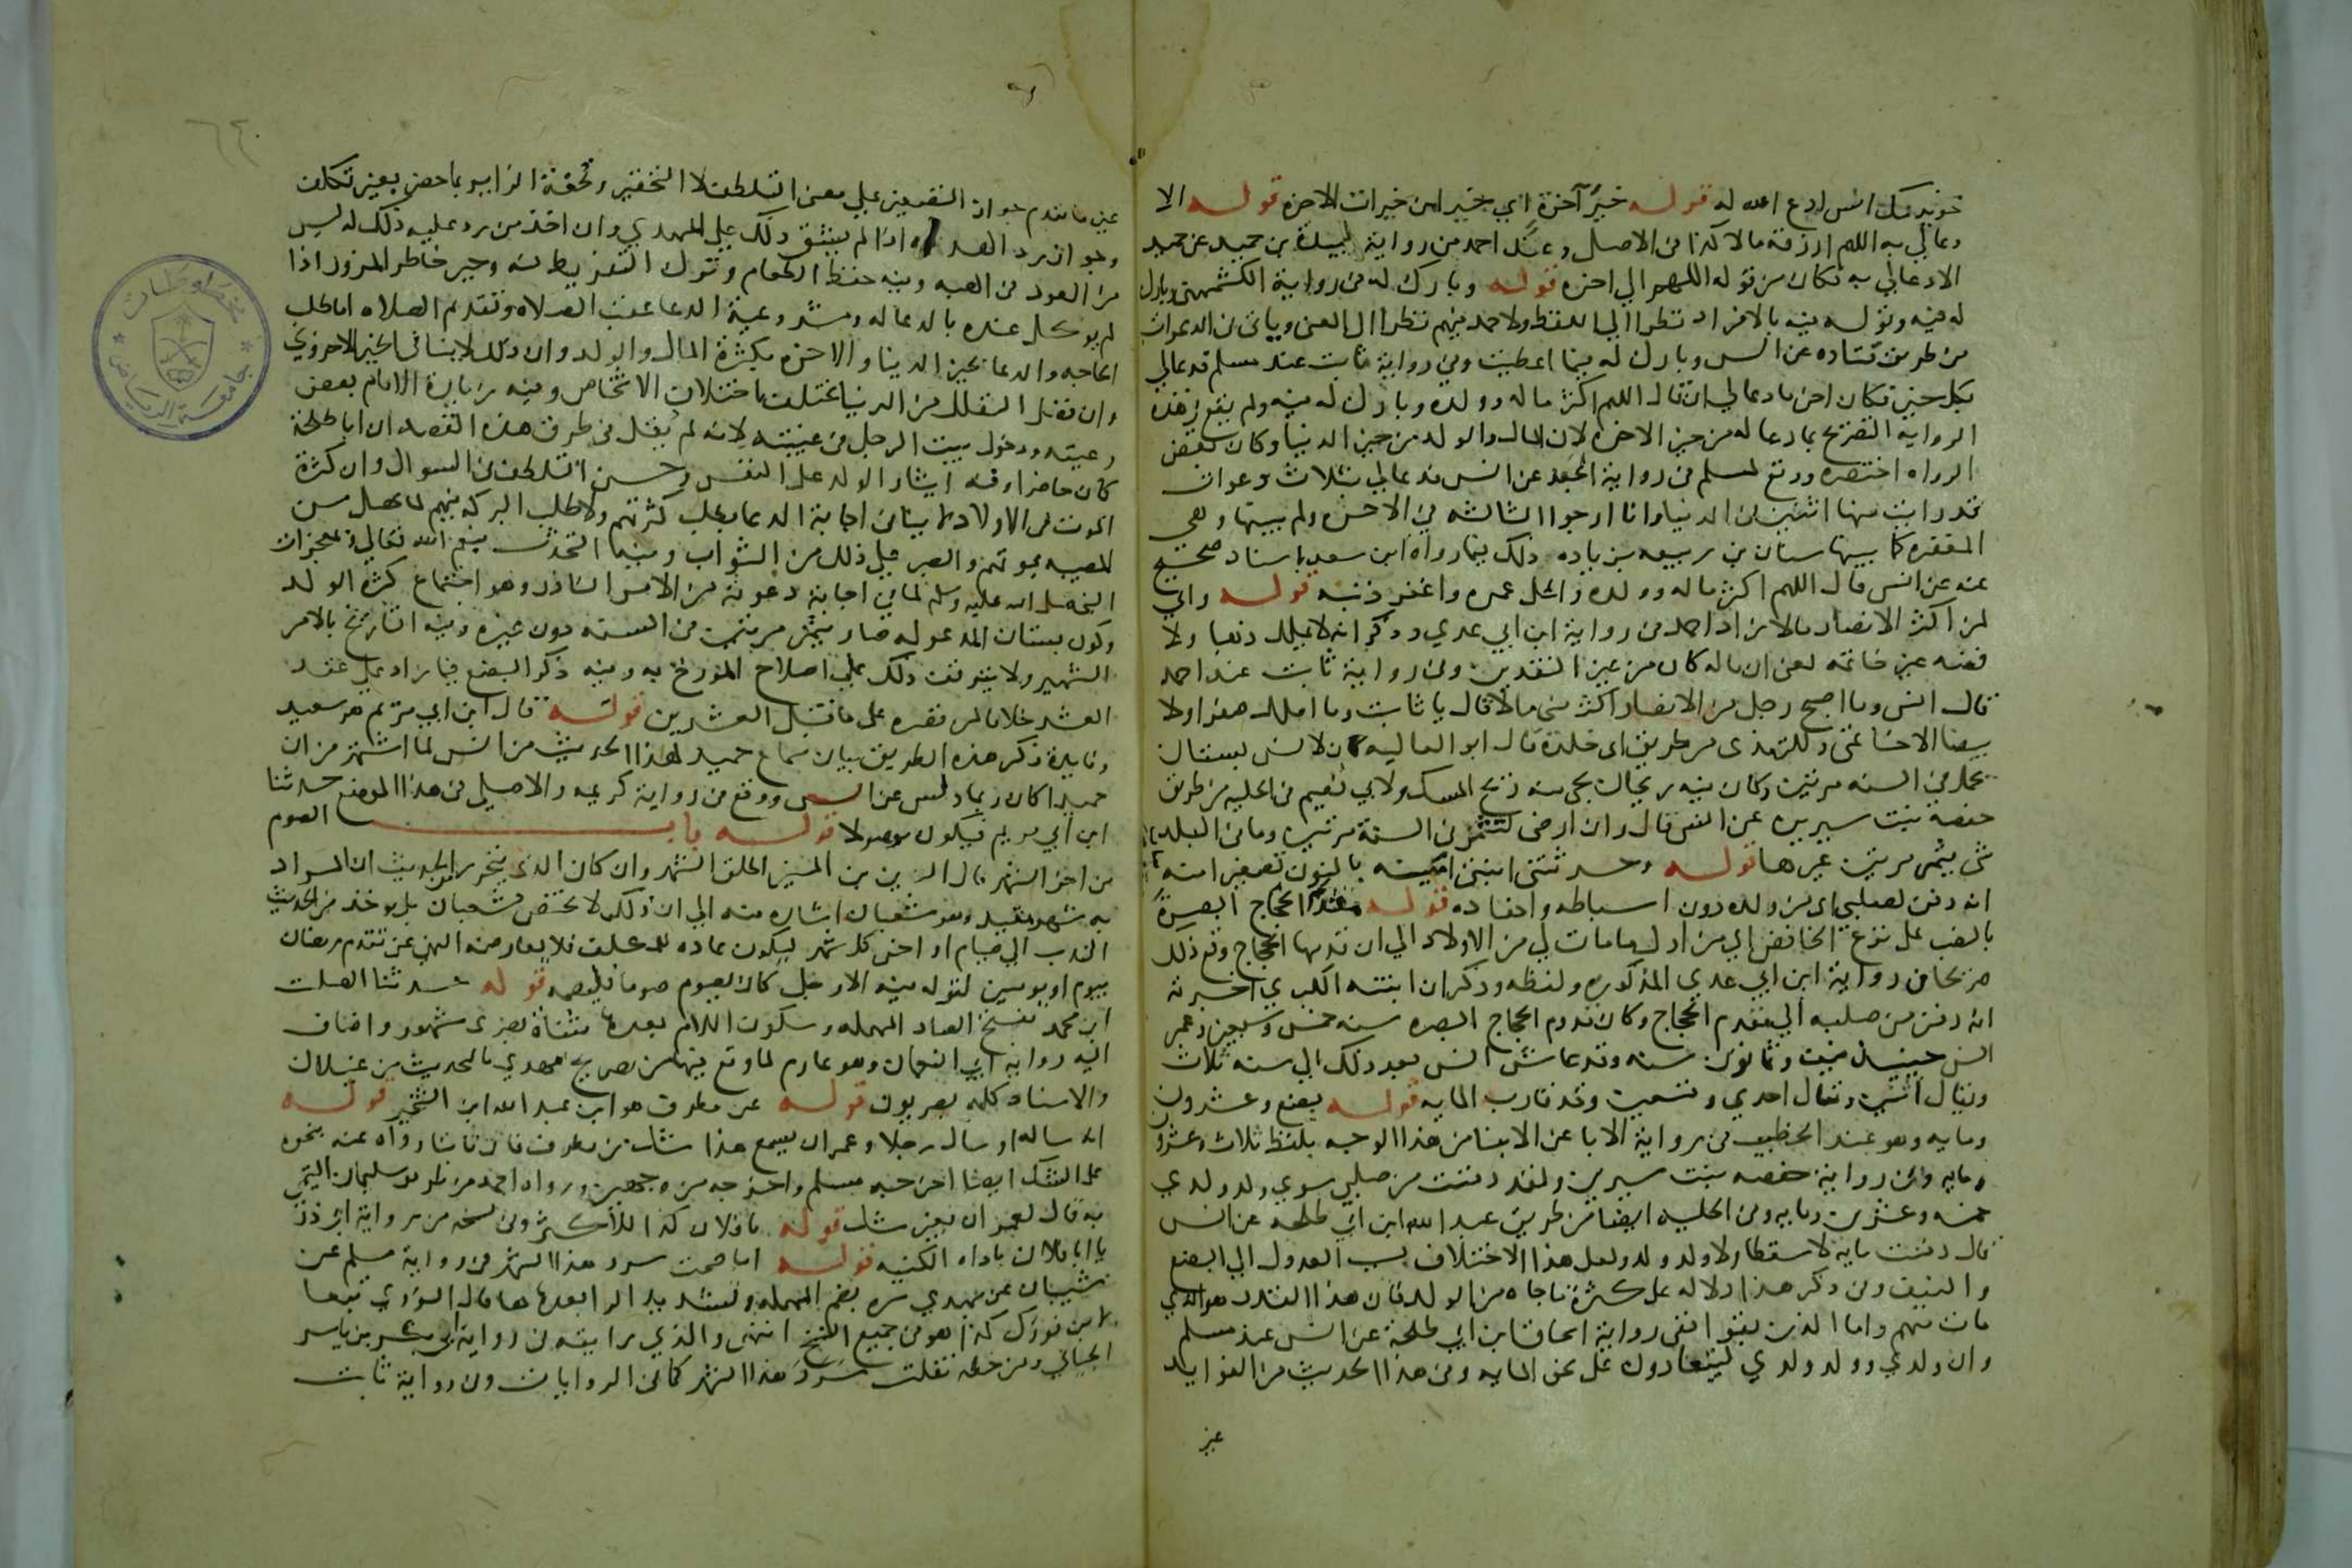 خويدمك انس ادع الله له قوله خير آخرة اي خيرا من خيرات الاخرة قوله الا
دعا لي به اللهم ارزقه مالا كذا في الاصل وعند احمد من رواية عبيدة بن حميد عن حميد
الا دعا لي به فكان من قوله اللهم الي اخره قوله وبارك له في رواية الكشميهني وبارك
له فيه وقوله فيه بالافراد نظرا الي اللفظ ولاحمد فيهم نظرا الي المعنى وياتي في الدعوات
من طريق قتاده عن انس وبارك له فيما اعطيته وفي رواية ثابت عند مسلم فدعا لي
بكل خير فكان اخر ما دعا لي ان قال اللهم اكثر ماله وولده وبارك له فيه ولم يقع في هذه
الرواية التصريح بما دعا له من خير الاخرة لان المال والولد من خير الدنيا وكان بعض
الرواه اختصره ووقع لمسلم في رواية الجعد عن انس فدعا لي بثلاث دعوات
قد رايت منها اثنتين في الدنيا وانا ارجوا الثالثة في الاخرة ولم يبينها وهي
المغفرة كما بينها سنان بن ربيعه بزياده وذلك فيما رواه ابن سعد باسناد صحيح
عنه عن انس قال اللهم اكثر ماله وولده واطل عمره واغفر ذنبه قوله واني
لمن اكثر الانصار مالا زاد احمد في رواية ابن ابي عدي وذكر انه لا يملك ذهبا ولا
فضه غير خاتمه يعني ان ماله كان من غير النقدين وفي رواية ثابت عند احمد
قال انس وما اصبح رجل من الانصار اكثر مني مالا قال يا ثابت وما املك صفرا ولا
بيضا الا خاتمي وللترمذي من طريق ابي خلدة قال ابو العاليه كان لانس بستان
يحمل في السنه مرتين وكان فيه ريحان يجي منه ريح المسك ولابي نعيم في الحليه من طريق
حفصه بنت سيرين عن انس قال وان ارضي لتثمر في السنة مرتين وما في البلد
شي يثمر مرتين غيرها قوله وحدثتني ابنتي امينة بالنون تصغير امنه
انه دفن لصلبي اي من ولده دون اسباطه واحفاده قوله مقدم الحجاج البصرة
بالنصب على نزع الخافض اي من اول ما مات لي من الاولاد الي ان قدمها الحجاج وقع ذلك
صريحا في رواية ابن ابي عدي المذكوره ولفظه وذكر ان ابنته الكبري اخبرته
انه دفن من صلبه الي مقدم الحجاج وكان قدوم الحجاج البصره سنه خمس وسبعين وعمر
انس حينئذ نيف وثمانون سنه وقد عاش انس بعد ذلك الي سنه ثلاث
ويقال اثنتين ويقال احدي وتسعين وقد قارب المايه قوله بضع وعشرون
ومايه وهو عند الخطيب في رواية الابا عن الابنا من هذا الوجه بلفظ ثلاث وعشرون
ومايه وفي رواية حفصه بنت سيرين ولقد دفنت من صلبي سوي ولد ولدي
خمسه وعشرين ومايه وفي الحليه ايضا من طريق عبد الله ابن ابي طلحه عن انس
قال دفنت مايه لا سقطا ولا ولد ولد ولعل هذا الاختلاف سبب العدول الي البضع
والنيف وفي ذكر هذا دلاله على كثرة ما جاه من الولد فان هذا القدر هو الذي
مات منهم واما الذين بقوا ففي رواية اسحاق ابن ابي طلحة عن انس عند مسلم
وان ولدي وولد ولدي ليتعادون على نحو المايه وفي هذا الحديث من الفوايد
غير
غير ما تقدم جواز التصغير على معنى التلطف لا التحقير وتحفة الزاير بما حضر بغير تكلف
وجواز رد الهديه اذا لم يشق ذلك علي المهدي وان اخذ من رد عليه ذلك له ليس
من العود في الهبه وفيه حفظ الطعام وترك التفريط فيه وجبر خاطر المزور اذا
لم يوكل عنده بالدعا له ومشروعية الدعا عقب الصلاة وتقديم الصلاه امام طلب
الحاجه والدعا بخير الدنيا والاخره بكثرة المال والولد وان ذلك لا ينافي الخير الاخروي
وان فضل التقلل من الدنيا يختلف باختلاف الاشخاص وفيه زيارة الامام بعض
رعيته ودخول بيت الرجل في غيبته لانه لم يقل في طرق هذه القصه ان ابا طلحة
كان حاضرا وفيه ايثار الولد على النفس وحسن التلطف في السوال وان كثرة
الموت في الاولاد لا ينافي اجابة الدعا بطلب كثرتهم ولا طلب البركه فيهم لما يحصل من
المصيبه بموتهم والصبر على ذلك من الثواب وفيه التحدث بنعم الله تعالي وبمعجزات
النبي صلى الله عليه وسلم لما في اجابة دعوته من الامر النادر وهو اجتماع كثرة الولد
وكون بستان المدعو له صار يثمر مرتين في السنه دون غيره وفيه التاريخ بالامر
الشهير ولا يتوقف ذلك علي صلاح المؤرخ به وفيه ذكر البضع فيما زاد على عقد
العشر خلافا لمن قصره على ما قبل العشرين قوله قال ابن ابي مريم هو سعيد
وفايدة ذكر هذه الطريق بيان سماع حميد لهذا الحديث من انس لما اشتهر من ان
حميدا كان ربما دلس عن انس ووقع في رواية كريمه والاصيلي في هذا الموضع حدثنا
ابن ابي مريم فيكون موصولا قوله باب الصوم
من اخر الشهر قال الزين بن المنير اطلق الشهر وان كان الذي يتحرر من الحديث ان المراد
به شهر مقيد وهو شعبان اشاره منه الي ان ذلك لا يختص بشعبان بل يوخذ من الحديث
الندب الي صيام اواخر كل شهر ليكون عاده للمكلف فلا يعارضه النهي عن تقدم رمضان
بيوم او يومين لقوله فيه الا رجل كان يصوم صوما فليصمه قوله حدثنا الصلت
ابن محمد بفتح الصاد المهمله وسكون اللام بعدها مثناة بصري مشهور واضاف
اليه رواية ابي النعمان وهو عارم لما وقع فيها من تصريح مهدي بالتحديث من غيلان
والاسناد كله بصريون قوله عن مطرف هو ابن عبد الله ابن الشخير قوله
انه ساله او سال رجلا وعمران يسمع هذا شك من مطرف فان ثابتا رواه عنه بنحوه
على الشك ايضا اخرجه مسلم واخرجه من وجهين ورواه احمد من طريق سليمان التيمي
به قال لعمران بغير شك قوله يا فلان كذا للاكثر وفي نسخه من رواية ابي ذر
يا ابا فلان باداه الكنيه قوله اما صمت سرر هذا الشهر في رواية مسلم عن
شيبان عن مهدي سره بضم المهمله وتشديد الرا بعدها ها قال النووي تبعا
لابن قرقول كذا هو في جميع النسخ انتهي والذي رايته في رواية ابي بكر بن ياسر
الجياني ومن خطه نقلت سرر هذا الشهر كما في الروايات وفي رواية ثابت